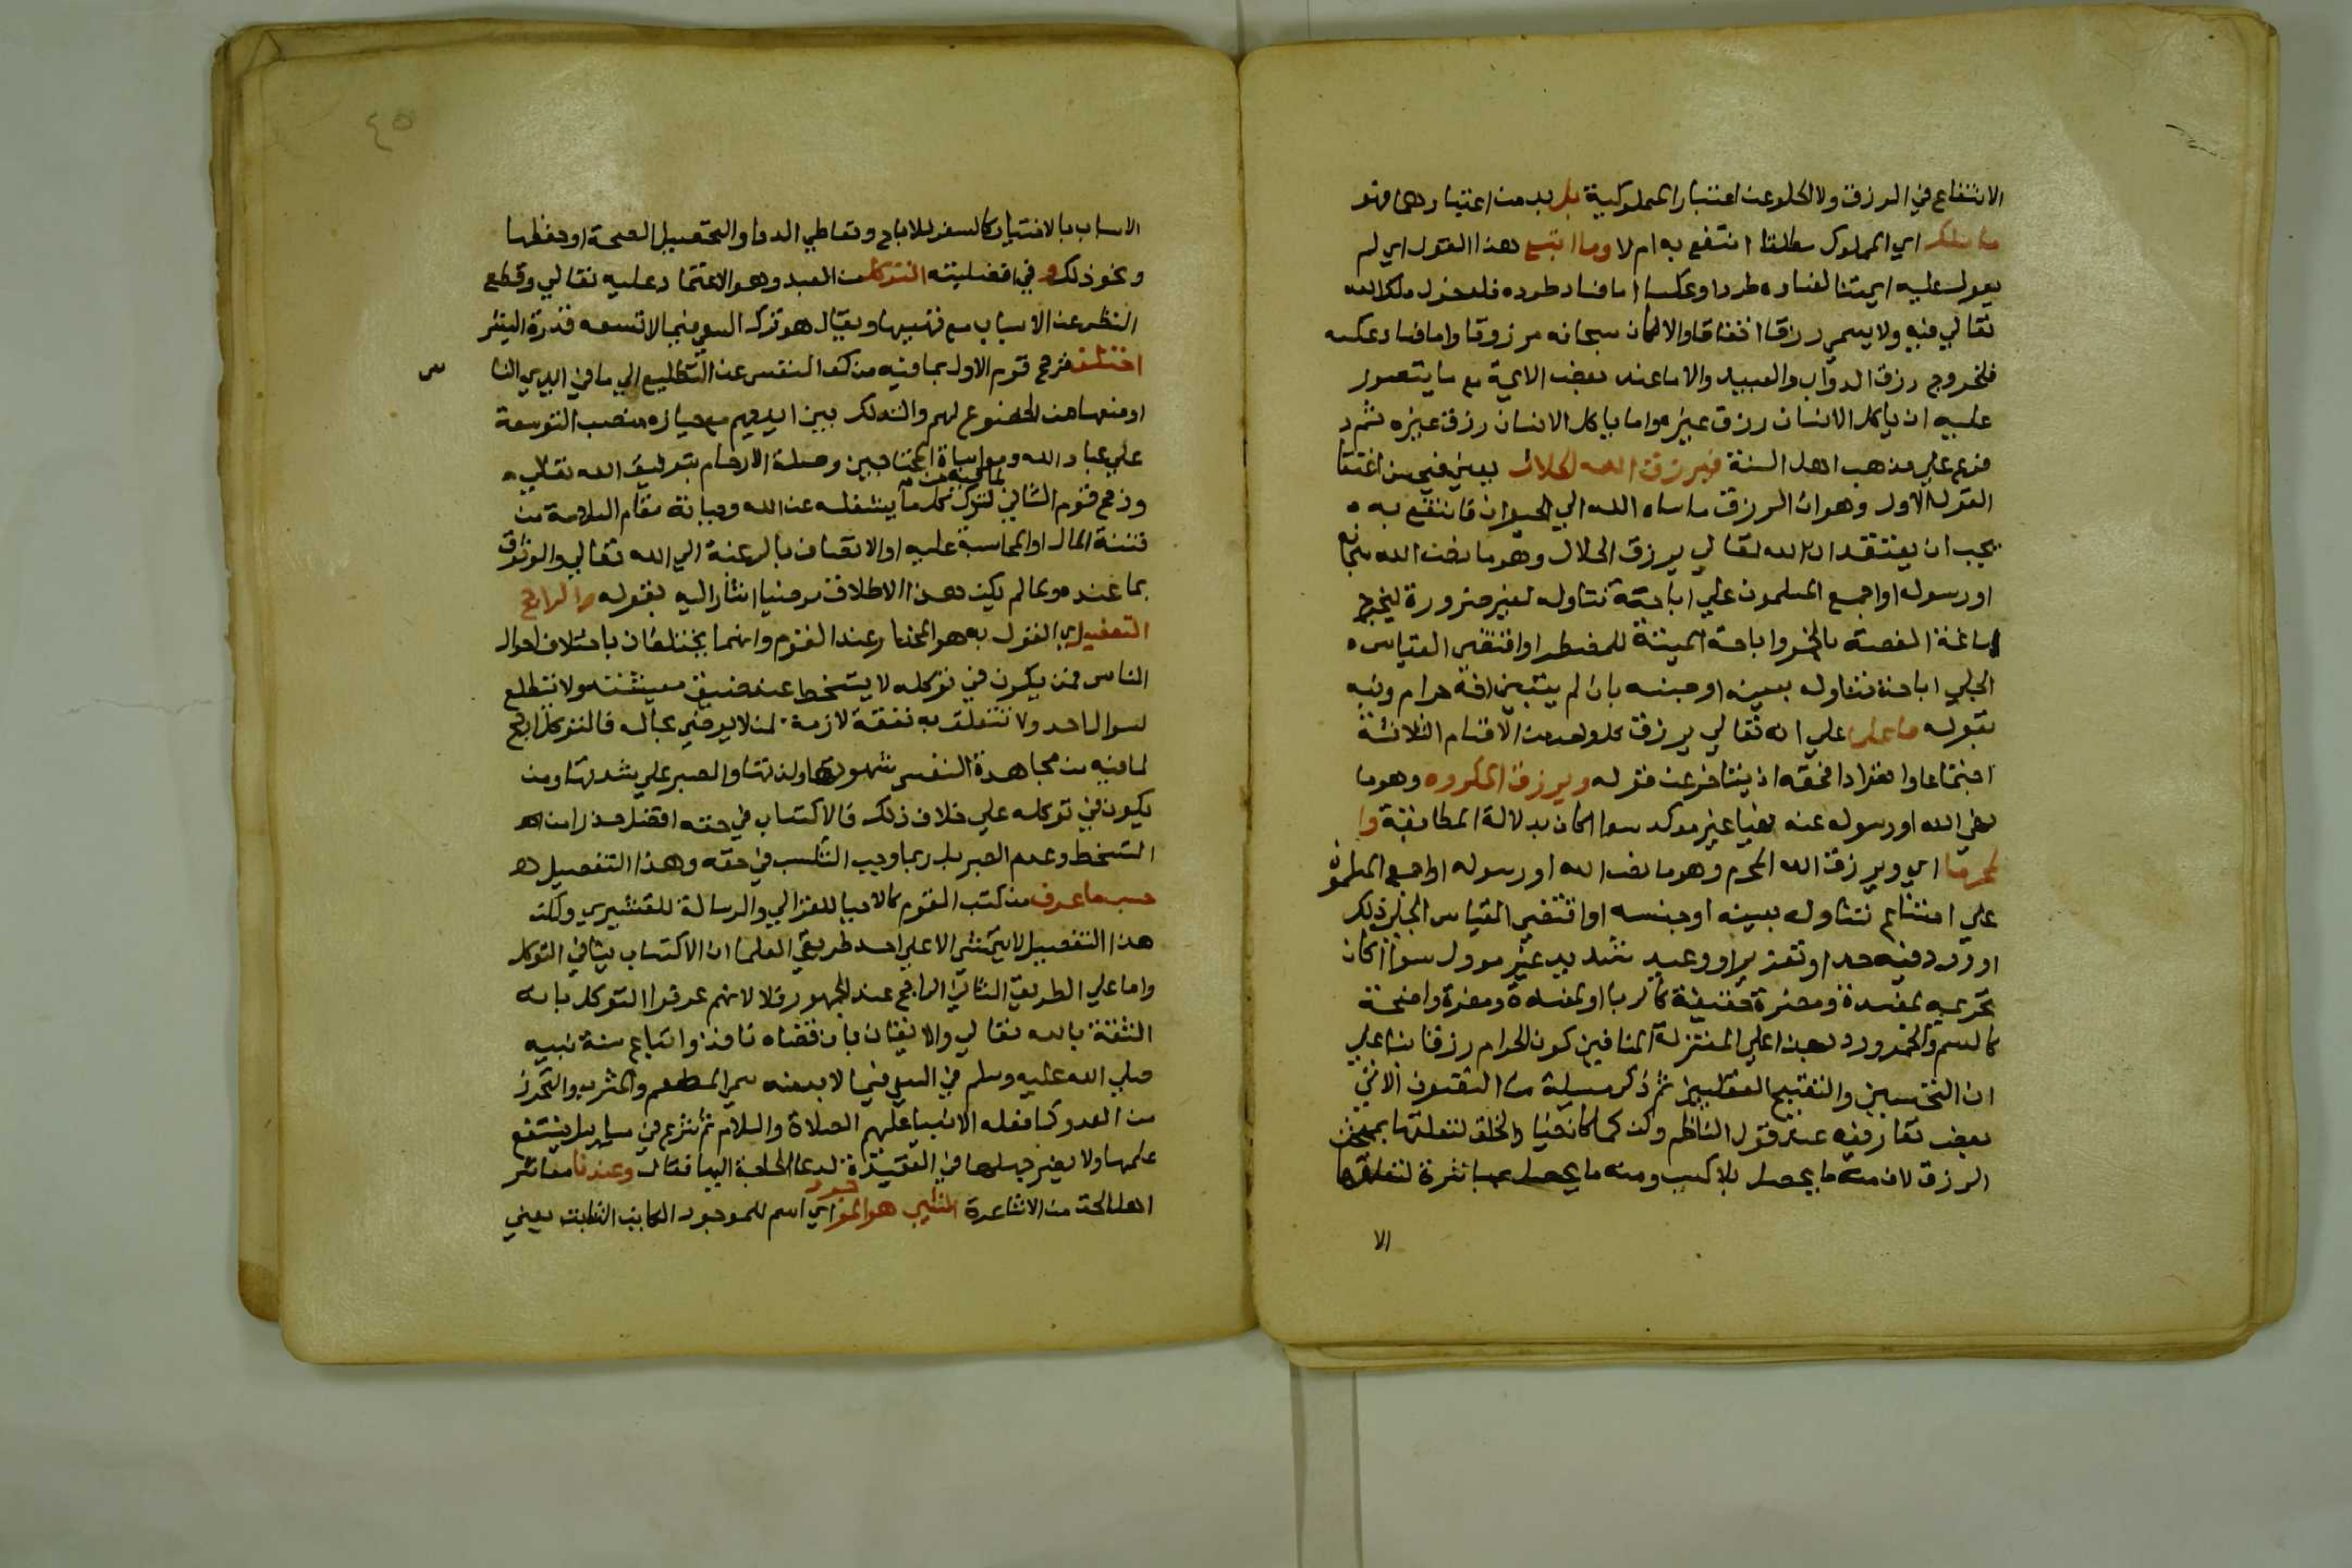 الانتفاع في الرزق ولا الخلو عن اعتبار المملوكية بل بد من اعتبارهما فهو
ما ملك اي المملوك مطلقا انتفع به ام لا وما اتبع هذا القول اي لم
يعول عليه ايمتنا لفساده طردا وعكسا اما فساد طرده فلدخول ملك الله
تعالي فيه ولا يسمي رزقا اتفاقا والا لكان سبحانه مرزوقا واما فساد عكسه
فلخروج رزق الدواب والعبيد والاما عند بعض الايمة مع ما يتصور
عليه ان ياكل الانسان رزق غيره واما ياكل الانسان رزق غيره ثم
فرع علي مذهب اهل السنة فيرزق الله الحلال يعني فيجب اعتقا
القول الاول وهو ان الرزق ما ساقه الله الي الحيوان فانتفع به
يجب ان يعتقد ان الله تعالي يرزق الحلال وهو ما نص الله سبحانه
او رسوله او اجمع المسلمون علي اباحة تناوله لغير ضرورة ليخرج
اساغة الغصة بالخمر واباحة الميتة للمضطر او اقتضي القياس
الجلي اباحة تناوله بعينه او جنسه بان لم يتبين انه حرام ونبه
بقوله فاعلما علي انه تعالي يرزق كل واحد من الاقسام الثلاثة
اجتماعا وانفرادا فحقه ان يتاخر عن قوله ويرزق المكروه وهو ما
نهي الله او رسوله عنه نهيا غير موكد سوا كان بدلالة المطابقة وا
لمحرما اي ويرزق الله المحرم وهو ما نص الله او رسوله او اجمع المسلمون
علي امتناع تناوله بعينه او جنسه او اقتضي القياس الجلي ذلك
او ورد فيه حد او تعزير او وعيد شديد غير موول سوا كان
تحريمه لمفسدة ومضرة خفيفة كالربا او لمفسدة ومضرة واضحة
كالسم والخمر ورد بهذا علي المعتزلة المنافين كون الحرام رزقا بنا علي
ان التحسين والتقبيح العقليين ثم ذكر مسيلة من التقوي الاتي
بعض تعاريفه عند قول الناظم وكن كما كان خيار الخلق لتعلقها بمبحث
الرزق لان منه ما يحصل بلا كسب ومنه ما يحصل بمباشرة لتعلقها
الا
الاسباب بالاختيار كالسفر للارباح وتعاطي الدوا والتحصيل الصحة او حفظها
ونحو ذلك وفي افضليته التوكل من العبد وهو الاعتماد عليه تعالي وقطع
النظر عن الاسباب مع تهييها ويقال هو ترك السعي فيما لا تسعه قدرة البشر
اختلف فرجح قوم الاول بما فيه من كف النفس عن التطلع الي ما في ايدي النا س
او منعها من الخضوع لهم والتذلل بين ايديهم مع حيازه منصب التوسعة
علي عباد الله ومواساة المحتاجين وصلة الارحام بتوفيق الله تعالي
ورجح قوم الثاني لترك كل ما يشغله عن الله وحيازة مقام السلامة من
فتنة المال او المحاسبة عليه او الاتصاف بالرغبة الي الله تعالي والوثوق
بما عنده ولما لم يكن هذا الاطلاق مرضيا اشار اليه بقوله والراجح
التفصيل اي القول به هو المختار عند القوم وانهما يختلفان باختلاف احوال
الناس فمن يكون في توكله لا يتسخط عند ضيق معيشته ولا تتطلع
لسوال احد ولا تتعلق به نفقة لازمة لمن لا يرضي بحاله فالتوكل ارجح
لما فيه من مجاهدة النفس شهوتها ولذتها والصبر علي شدتها ومن
يكون في توكله علي خلاف ذلك فالاكتساب في حقه افضل حذرا من
التسخط وعدم الصبر بل ربما وجب التكسب في حقه وهذا التفصيل
حسبما عرف من كتب القوم كالاحيا للغزالي والرسالة للقشيري ولكن
هذا التفصيل لا يتمشي الا علي احد طريقي العلما ان الاكتساب ينافي التوكل
واما علي الطريق الثاني الراجح عند الجمهور فلا لانهم عرفوا التوكل بانه
الثقة بالله تعالي والايقان بان قضاه نافذ واتباع سنة نبيه
صلي الله عليه وسلم في السعي فيما لا بد منه من المطعم والمشرب والتحرز
من العدو كما فعله الانبيا عليهم الصلاة والسلام ثم شرع في مسايل ينتفع
علمها ولا يضر جهلها في العقيدة تدعا الحاجة اليها فقال وعندنا معاشر
اهل الحق من الاشاعرة الشي هو الموجود اي اسم للموجود الكاين الثابت يعني